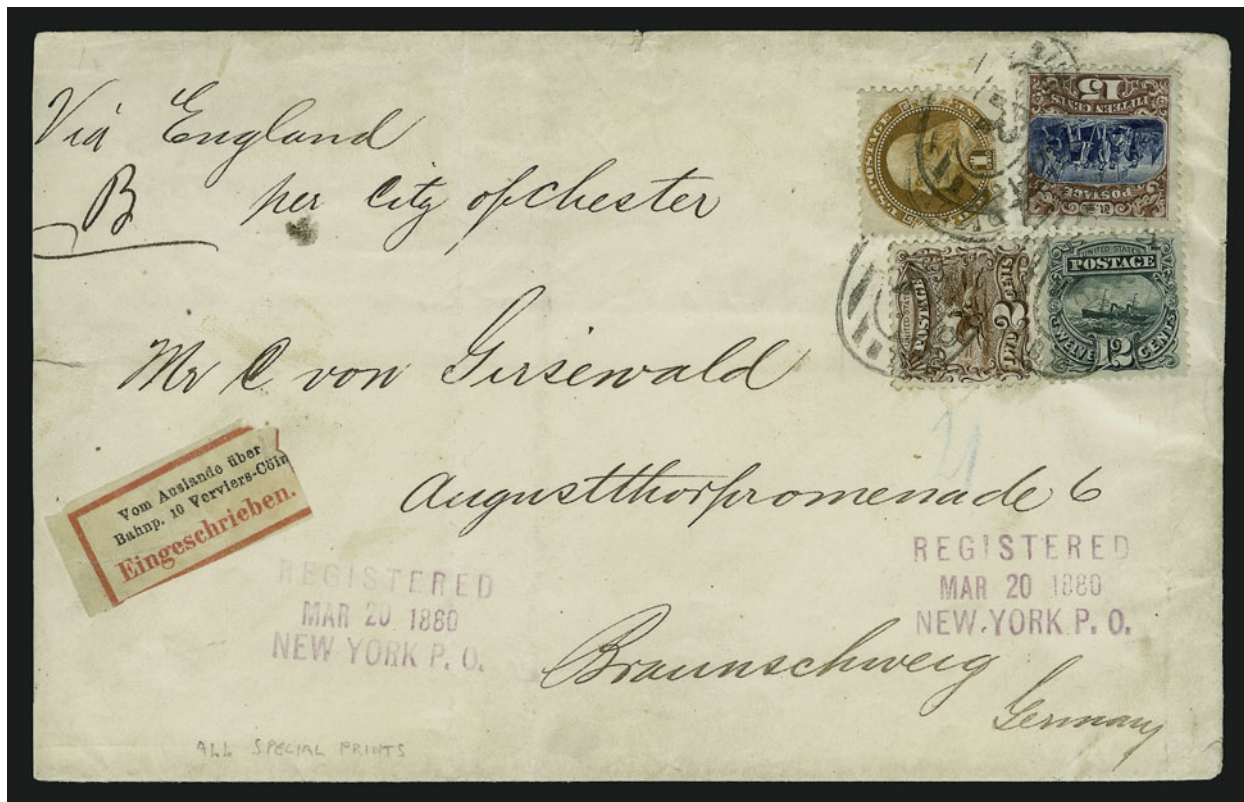 Via England
B per City of Chester
U.S. POSTAGE
1
15
FIFTEEN CENTS
POSTAGE
U.S.
UNITED STATES
POSTAGE
2
CENTS
UNITED STATES
POSTAGE
TWELVE 12 CENTS
Mr C von Girsewald
21
Vom Auslande über
Bahnp. 10 Verviers-Cöln
Eingeschrieben.
Augustthorpromenade 6
REGISTERED
MAR 20 1880
NEW YORK P. O.
REGISTERED
MAR 20 1880
NEW YORK P. O.
Braunschweig
Germany
ALL SPECIAL PRINTS